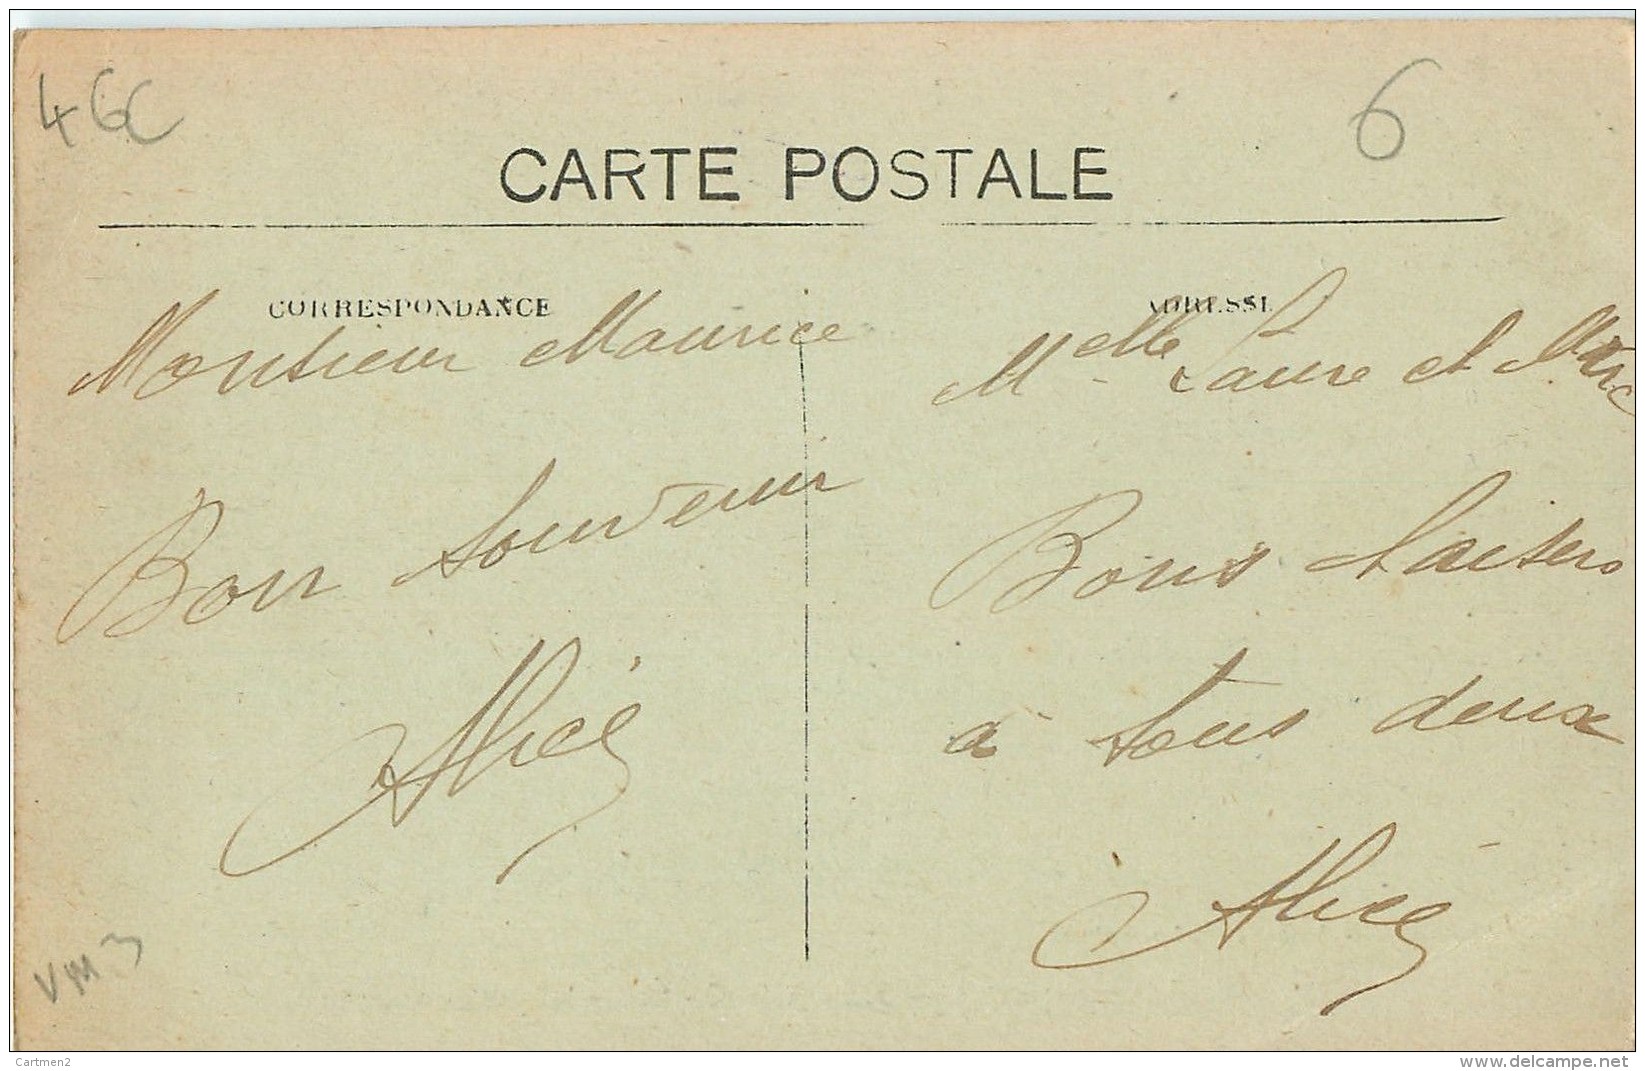 46c
6
CARTE POSTALE
CORRESPONDANCE
Monsieur Maurice
Bon Souvenir
Alice
ADRESSE
Melle Laure et Marc
Bons baisers
à tous deux
Alice
VM3
Cartmen2
www.delcampe.net